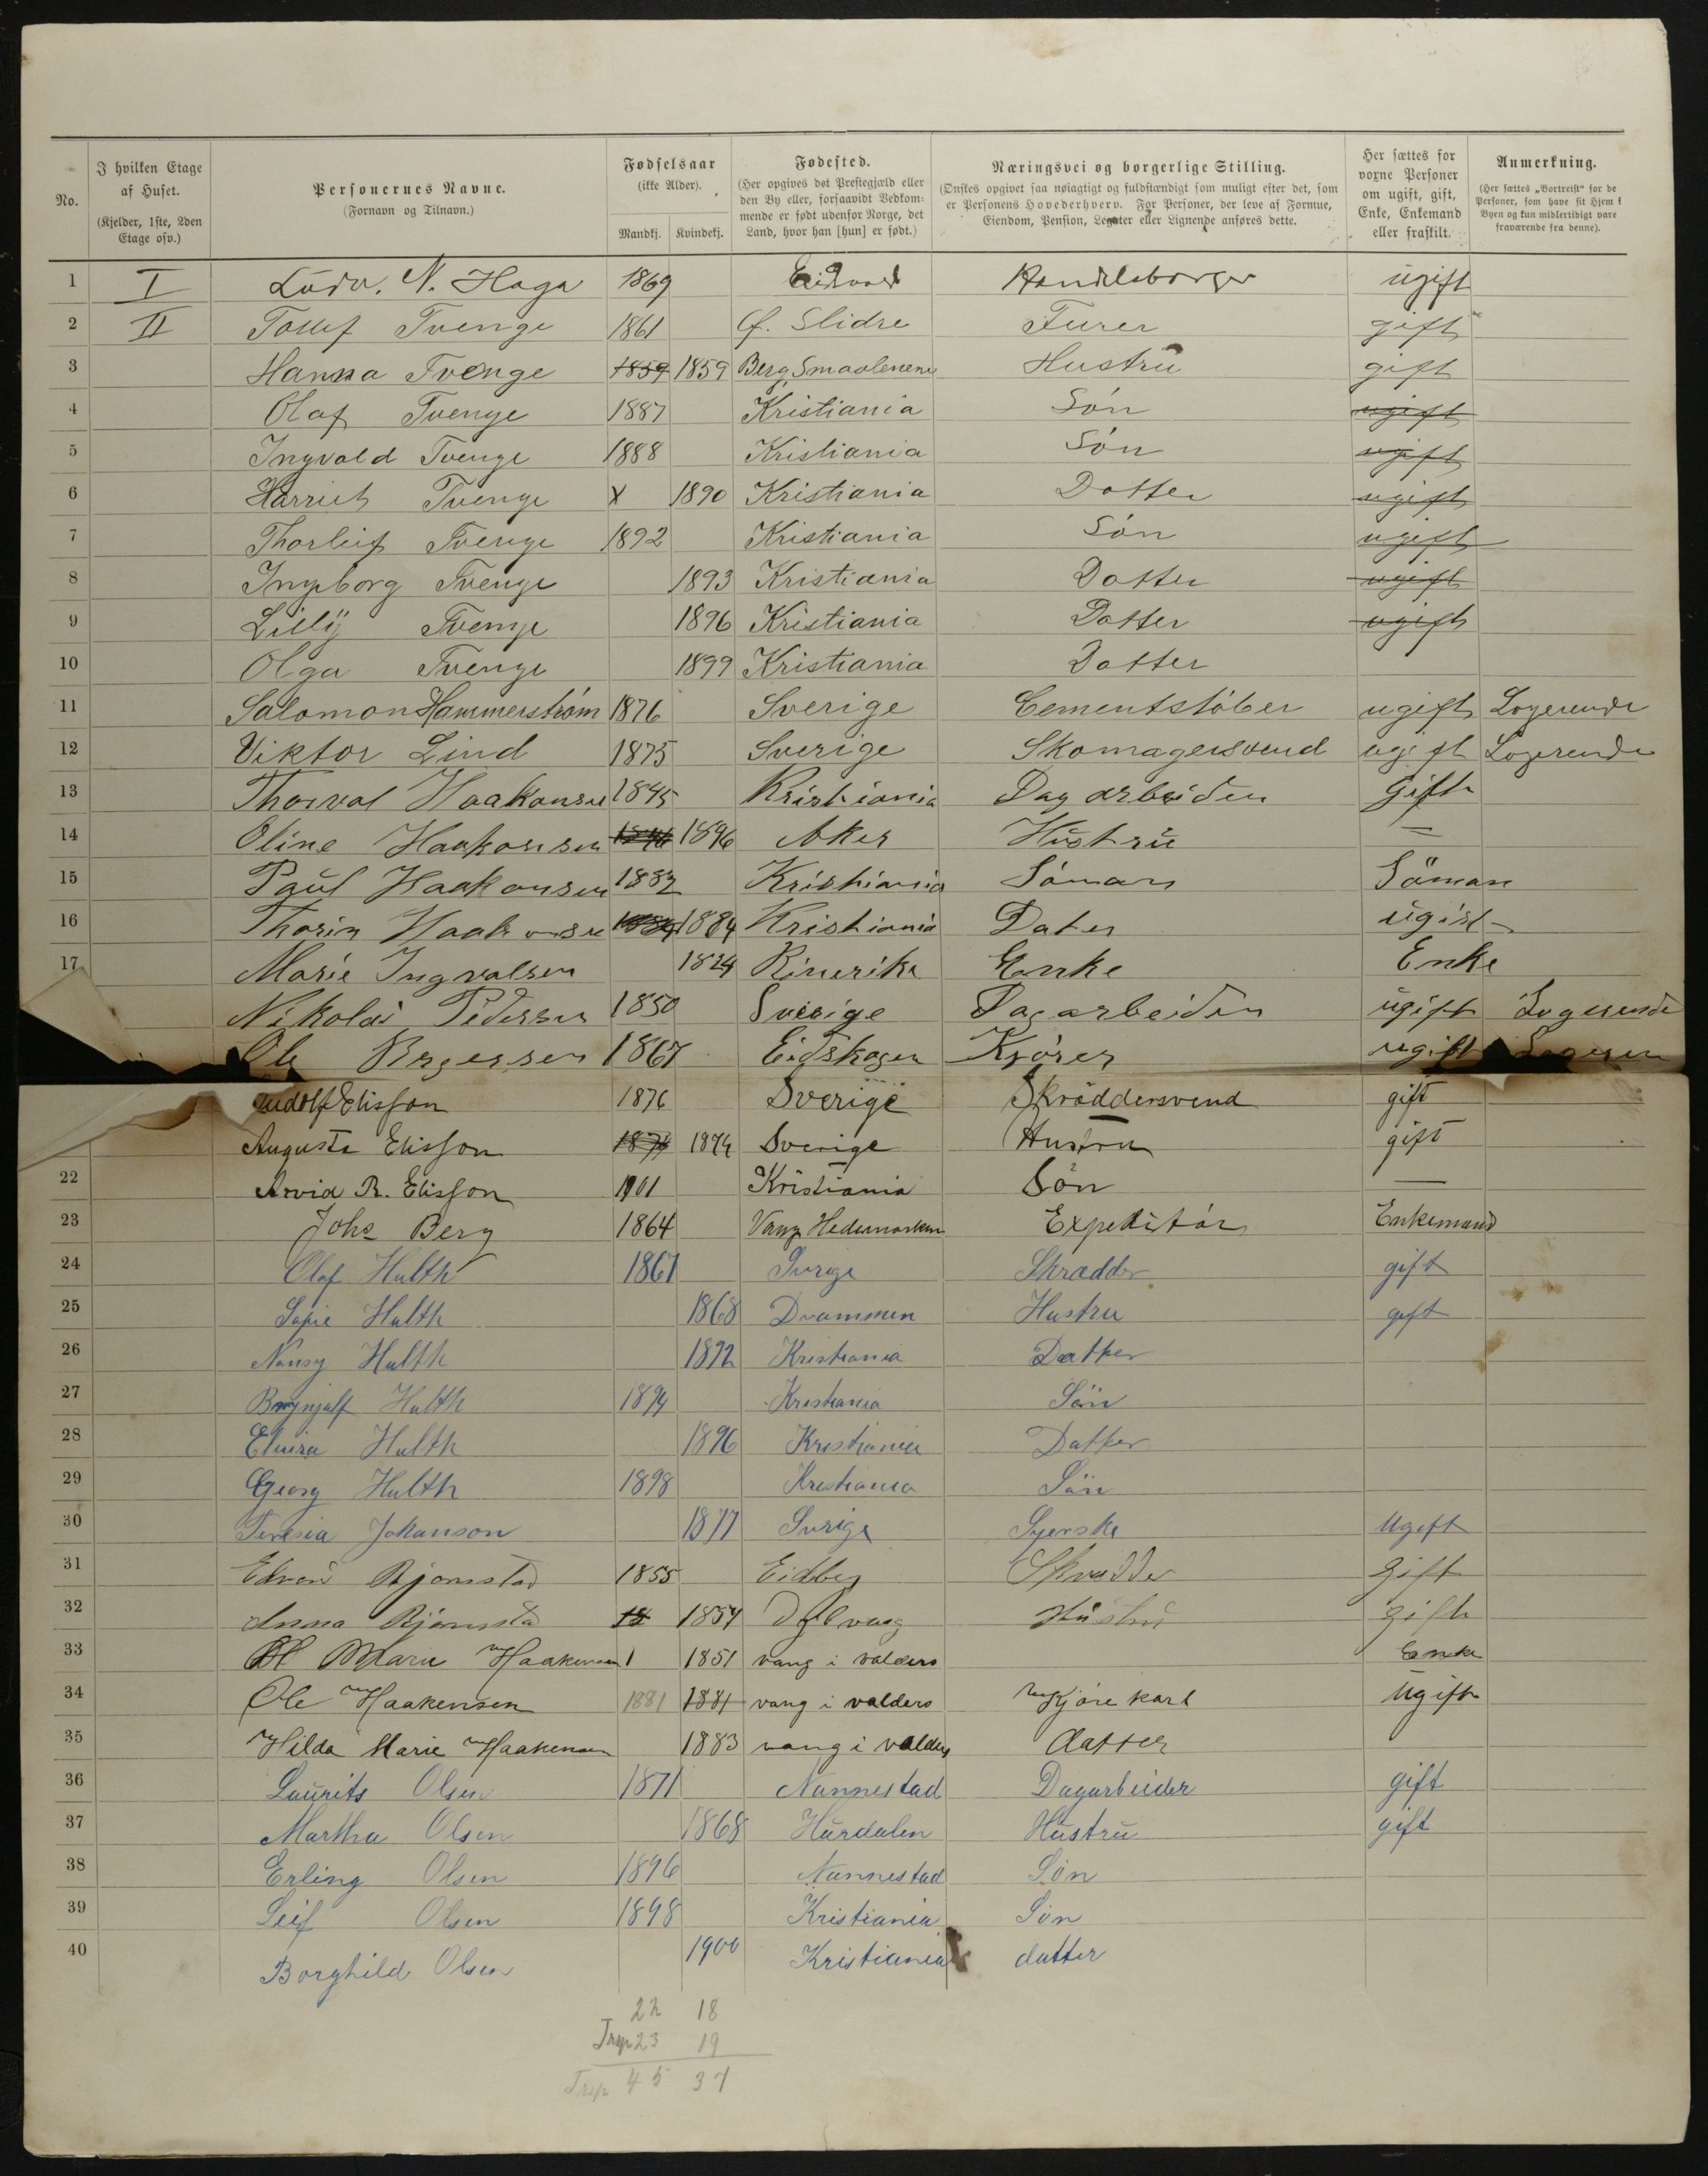 No. I hvilken Etage af Huset. (Kjelder, 1ste, 2den Etage osv.) Personernes Navne. (Fornavn og Tilnavn.) Fødselsaar (ikke Alder). Mandkj. Kvindekj. Fødested. (Her opgives det Prestegjæld eller den By eller, forsaavidt Vedkommende er født udenfor Norge, det Land, hvor han [hun] er født.) Næringsvei og borgerlige Stilling. (Ønskes opgivet saa nøiagtigt og fuldstændigt som muligt efter det, som er Personens Hovederhverv. For Personer, der leve af Formue, Eiendom, Pension, Legater eller Lignende anføres dette. Her sættes for voxne Personer om ugift, gift, Enke, Enkemand eller fraskilt. Anmerkning. (Her sættes „Bortreist“ for de Personer, som have sit Hjem i Byen og kun midlertidigt vare fraværende fra denne).
1 I Ludv. N. Haga 1869 Eidsvold Handelsborger ugift
2 II Tollef Tvenge 1861 Slidre Furer gift
3 Hanna Tvenge 1859 1859 Berg Smaalenene Hustru gift
4 Olaf Tvenge 1887 Kristiania Sön ugift
5 Ingvald Tvenge 1888 Kristiania Sön ugift
6 Harriet Tvenge X 1890 Kristiania Datter ugift
7 Thorleif Tvenge 1892 Kristiania Sön ugift
8 Ingeborg Tvenge 1893 Kristiania Datter ugift
9 Lilly Tvenge 1896 Kristiania Datter ugift
10 Olga Tvenge 1899 Kristiania Datter
11 Salomon Hammerström 1876 Sverige Cementstöber ugift Logerende
12 Viktor Lind 1875 Sverige Skomagersvend ugift Logerende
13 Thorval Haakonsen 1845 Kristiania Dagarbeider Gift
14 Oline Haakonsen 1846 Aker Hustru —
15 Paul Haakonsen 1882 Kristiania Söman Söman
16 Haakonsen 1884 1884 Kristiania Dater ugift
17 Marie Ingvalsen 1824 Rinerike Enke Enke
Nikolai Pedersen 1850 Sverige Dagarbeider ugift Logerende
Ole 1867 Eidskogen Kjörer ugift
Rudolf Elisson 1876 Sverige Skräddersvend gift
Augusta Elisson 1874 1874 Sverige Hustru gift
22 Arvid R. Elisson 1901 Kristiania Sön —
23 Johs Berg 1864 Vang Hedemarken Expeditör Enkemand
24 Olaf Hulth 1861 Sverige Skrädder gift
25 Sofie Hulth 1868 Drammen Hustru gift
26 Nansy Hulth 1892 Kristiania Datter
27 Brynjulf Hulth 1894 Kristiania Sön
28 Elvira Hulth 1896 Kristiania Datter
29 Georg Hulth 1898 Kristiania Sön
30 Teresia Johanson 1877 Sverige Syerske Ugift
31 Edvard Bjørnstad 1855 Eidberg Skrædder gift
32 Anna Bjørnstad 18 1854 Hustru gift
33 Marie Haakensen 1851 vang i valders Enke
34 Ole Haakensen 1881 1881 vang i valders Kjöre karl Ugift
35 Hilda Marie Haakensen 1883 vang i valders datter
36 Laurits Olsen 1871 Nannestad Dagarbeider gift
37 Martha Olsen 1868 Hurdalen Hustru gift
38 Erling Olsen 1896 Nannestad Sön
39 Leif Olsen 1898 Kristiania Sön
40 Borghild Olsen 1900 Kristiania datter
22 18
Trsp 23 19
Trsp 45 37